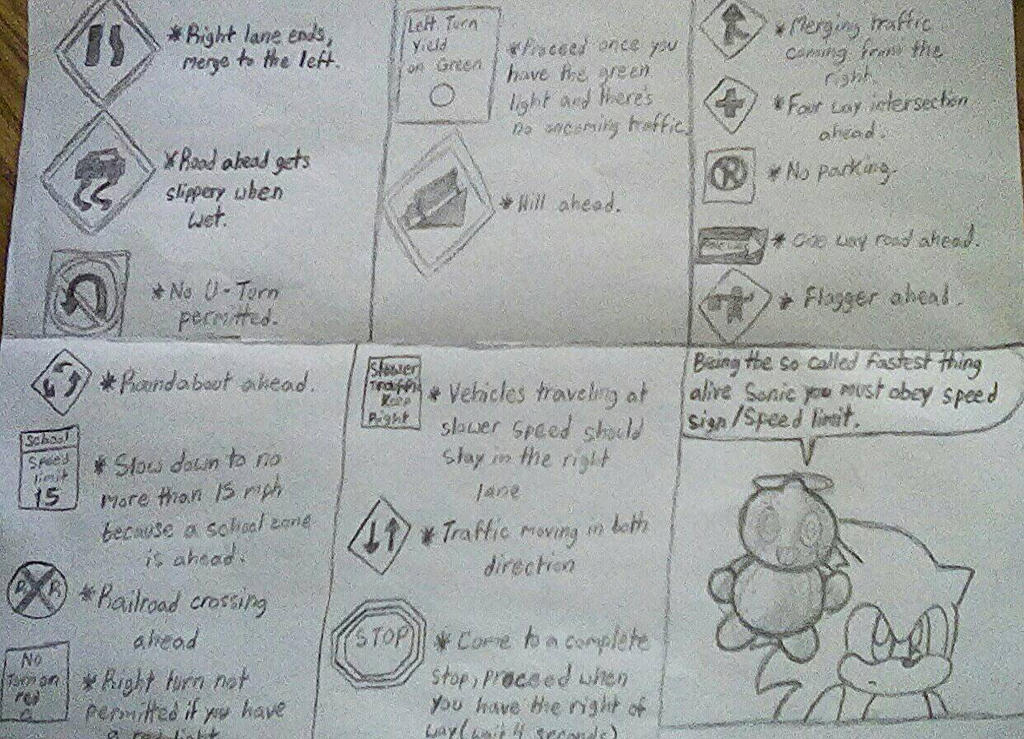 *Right lane ends,
merge to the left.
*Road ahead gets
slippery when
wet.
*No U-Turn
permitted.
Left Turn
Yield
on Green
*Proceed once you
have the green
light and there's
no oncoming traffic.
*Hill ahead.
*Merging traffic
coming from the
right.
*Four way intersection
ahead.
*No parking.
*One way road ahead.
*Flagger ahead.
*Roundabout ahead.
School
Speed
limit
15
*Slow down to no
more than 15 mph
because a school zone
is ahead.
R R
*Railroad crossing
ahead
No
Turn on
red
*Right turn not
permitted if you have
a red light
Slower
Traffic
Keep
Right
*Vehicles traveling at
slower speed should
stay in the right
lane
*Traffic moving in both
direction
STOP
*Come to a complete
stop, proceed when
you have the right of
way (wait 4 seconds)
Being the so called fastest thing
alive Sonic you must obey speed
sign/speed limit.